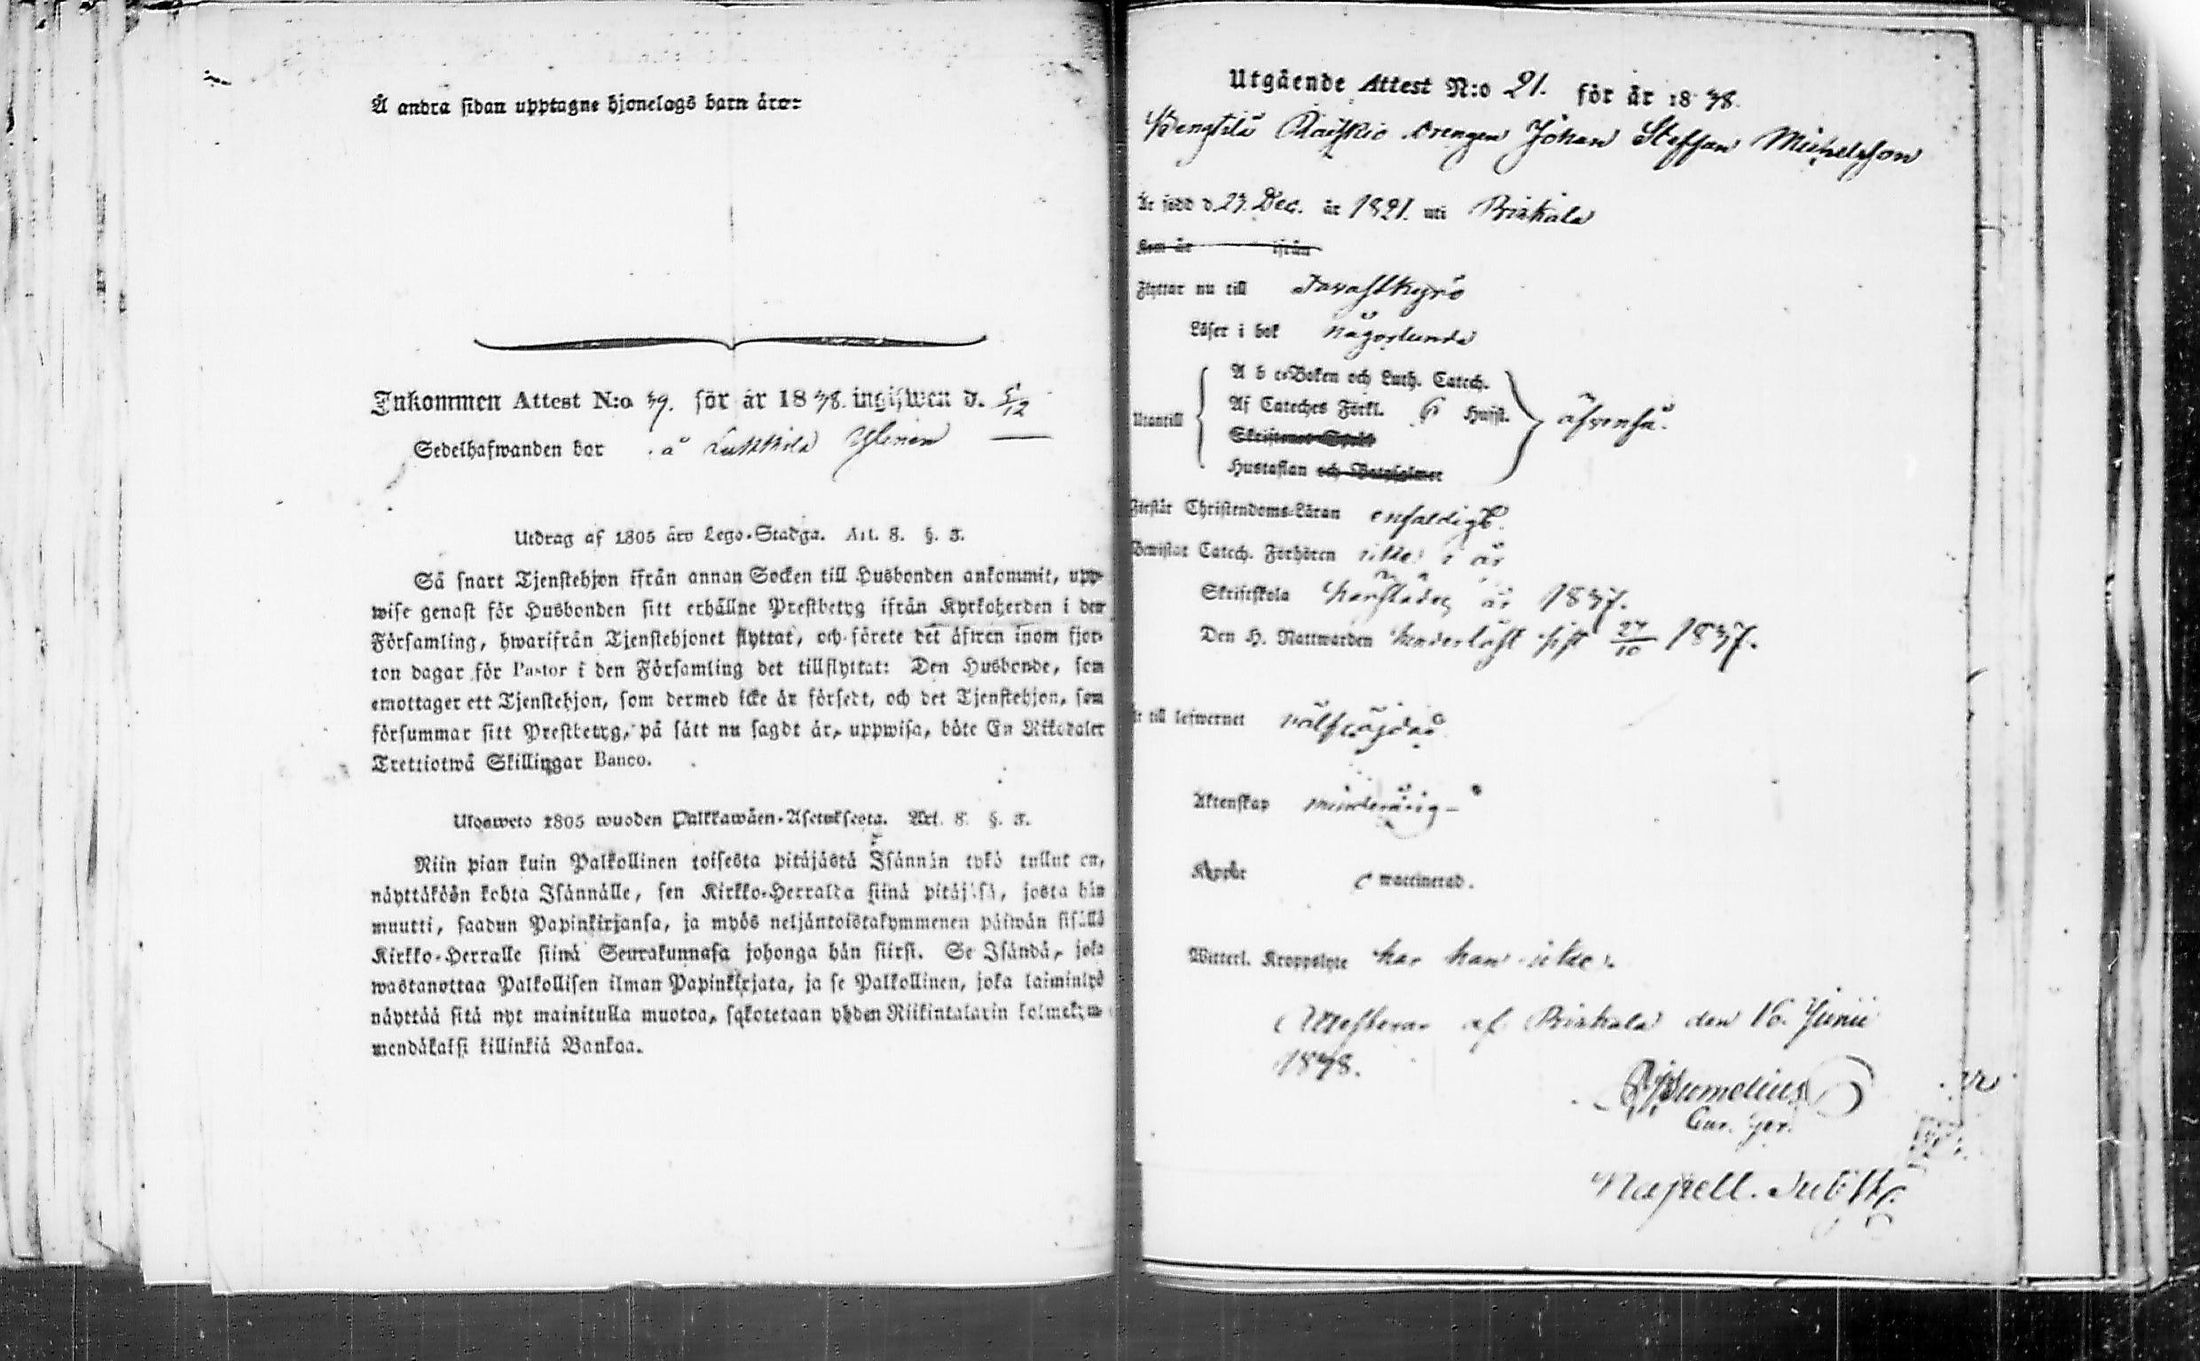 Å andra sidan upptagne hjonelags barn äro:
Inkommen Attest N:o 39. för år 1838. ingifwen d. 5/12
Sedelhafwanden bor å Lukkila Ylinen
Utdrag af 1805 års Lego-Stadga. Art. 8. §. 3.
Så snart Tjenstehjon ifrån annan Socken till Husbonden ankommit, upp-
wise genast för Husbonden sitt erhållne Prestbetyg ifrån Kyrkoherden i den
Församling, hwarifrån Tjenstehjonet flyttat, och förete det äfwen inom fjor-
ton dagar för Pastor i den Församling det tillflyttat: Den Husbonde, som
emottager ett Tjenstehjon, som dermed icke är försedt, och det Tjenstehjon, som
försummar sitt Prestbetyg, på sätt nu sagdt är, uppwisa, böte En Riksdaler
Trettiotwå Skillingar Banco.
Ulosweto 1805 wuoden Palkkawäen-Asetuksesta. Art. 8. §. 3.
Niin pian kuin Palkollinen toisesta pitäjästä Isännän tykö tullut on,
näyttäköön kohta Isännälle, sen Kirkko-Herralta siinä pitäjäsä, josta hän
muutti, saadun Papinkirjansa, ja myös neljäntoistakymmenen päiwän sisällä
Kirkko-Herralle siinä Seurakunnasa johonga hän siirsi. Se Isändä, joka
wastanottaa Palkollisen ilman Papinkirjata, ja se Palkollinen, joka laiminlyö
näyttää sitä nyt mainitulla muotoa, sakotetaan yhden Riikintalarin kolmekym-
mendäkaksi killinkiä Bankoa.
Utgående Attest N:o 21. för år 1838.
Bengtilä Raiskio drengen Johan Steffan Michelsson
Är född d. 23. Dec. år 1821. uti Birkala
Kom år ifrån
Flyttar nu till Tavastkyro
Läser i bok någorlunda
A b c-Boken och Luth. Catech.
Af Cateches Förkl. 6 Hufst.
Utantill äfvenså.
Hustaflan och
Förstår Christendoms-Läran enfaldigt.
Bewistat Catech. Förhören icke i år
Skriftskola år 1837.
Den H. Nattwarden sist 27/10 1837.
Är till lefwernet välfräjdad
Äktenskap minderårig
Koppor waccinerad.
Witterl. Kroppslyte har han icke.
Attesterar af Birkala den 16. Junii
1838.